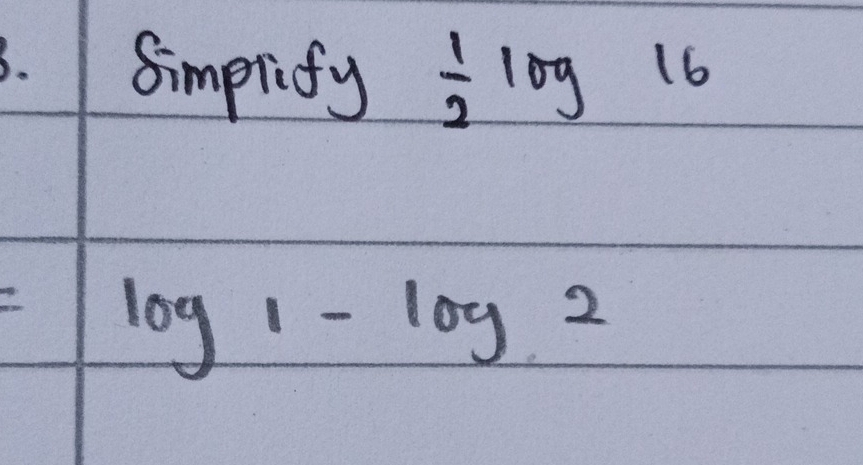 3. Simplify 1/2 log 16
= log 1 - log 2